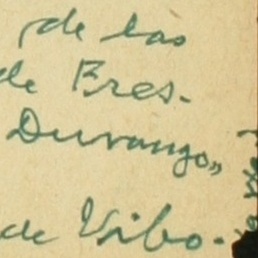 de las
de Fres-
Durango,,
de Vibo-